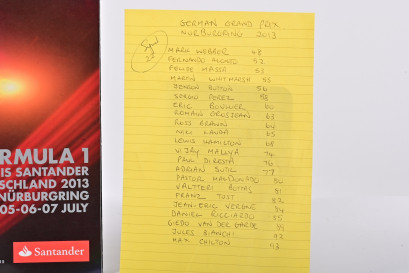 RMULA 1
IS SANTANDER
SCHLAND 2013
NÜRBURGRING
05-06-07 JULY
Santander
GERMAN GRAND PRIX
NURBURGRING 2013
MARK WEBBER 48
FERNANDO ALONSO 52
FELIPE MASSA 53
MARTIN WHITMARSH 55
JENSON BUTTON 56
SERGIO PEREZ 58
ERIC BOULLIER 60
ROMAIN GROSJEAN 63
ROSS BRAWN 64
NIKI LAUDA 65
LEWIS HAMILTON 68
VIJAY MALLYA 74
PAUL DI RESTA 76
ADRIAN SUTIL 77
PASTOR MALDONADO 80
VALTTERI BOTTAS 81
FRANZ TOST 82
JEAN-ERIC VERGNE 84
DANIEL RICCIARDO 85
GIEDO VAN DER GARDE 89
JULES BIANCHI 92
MAX CHILTON 93